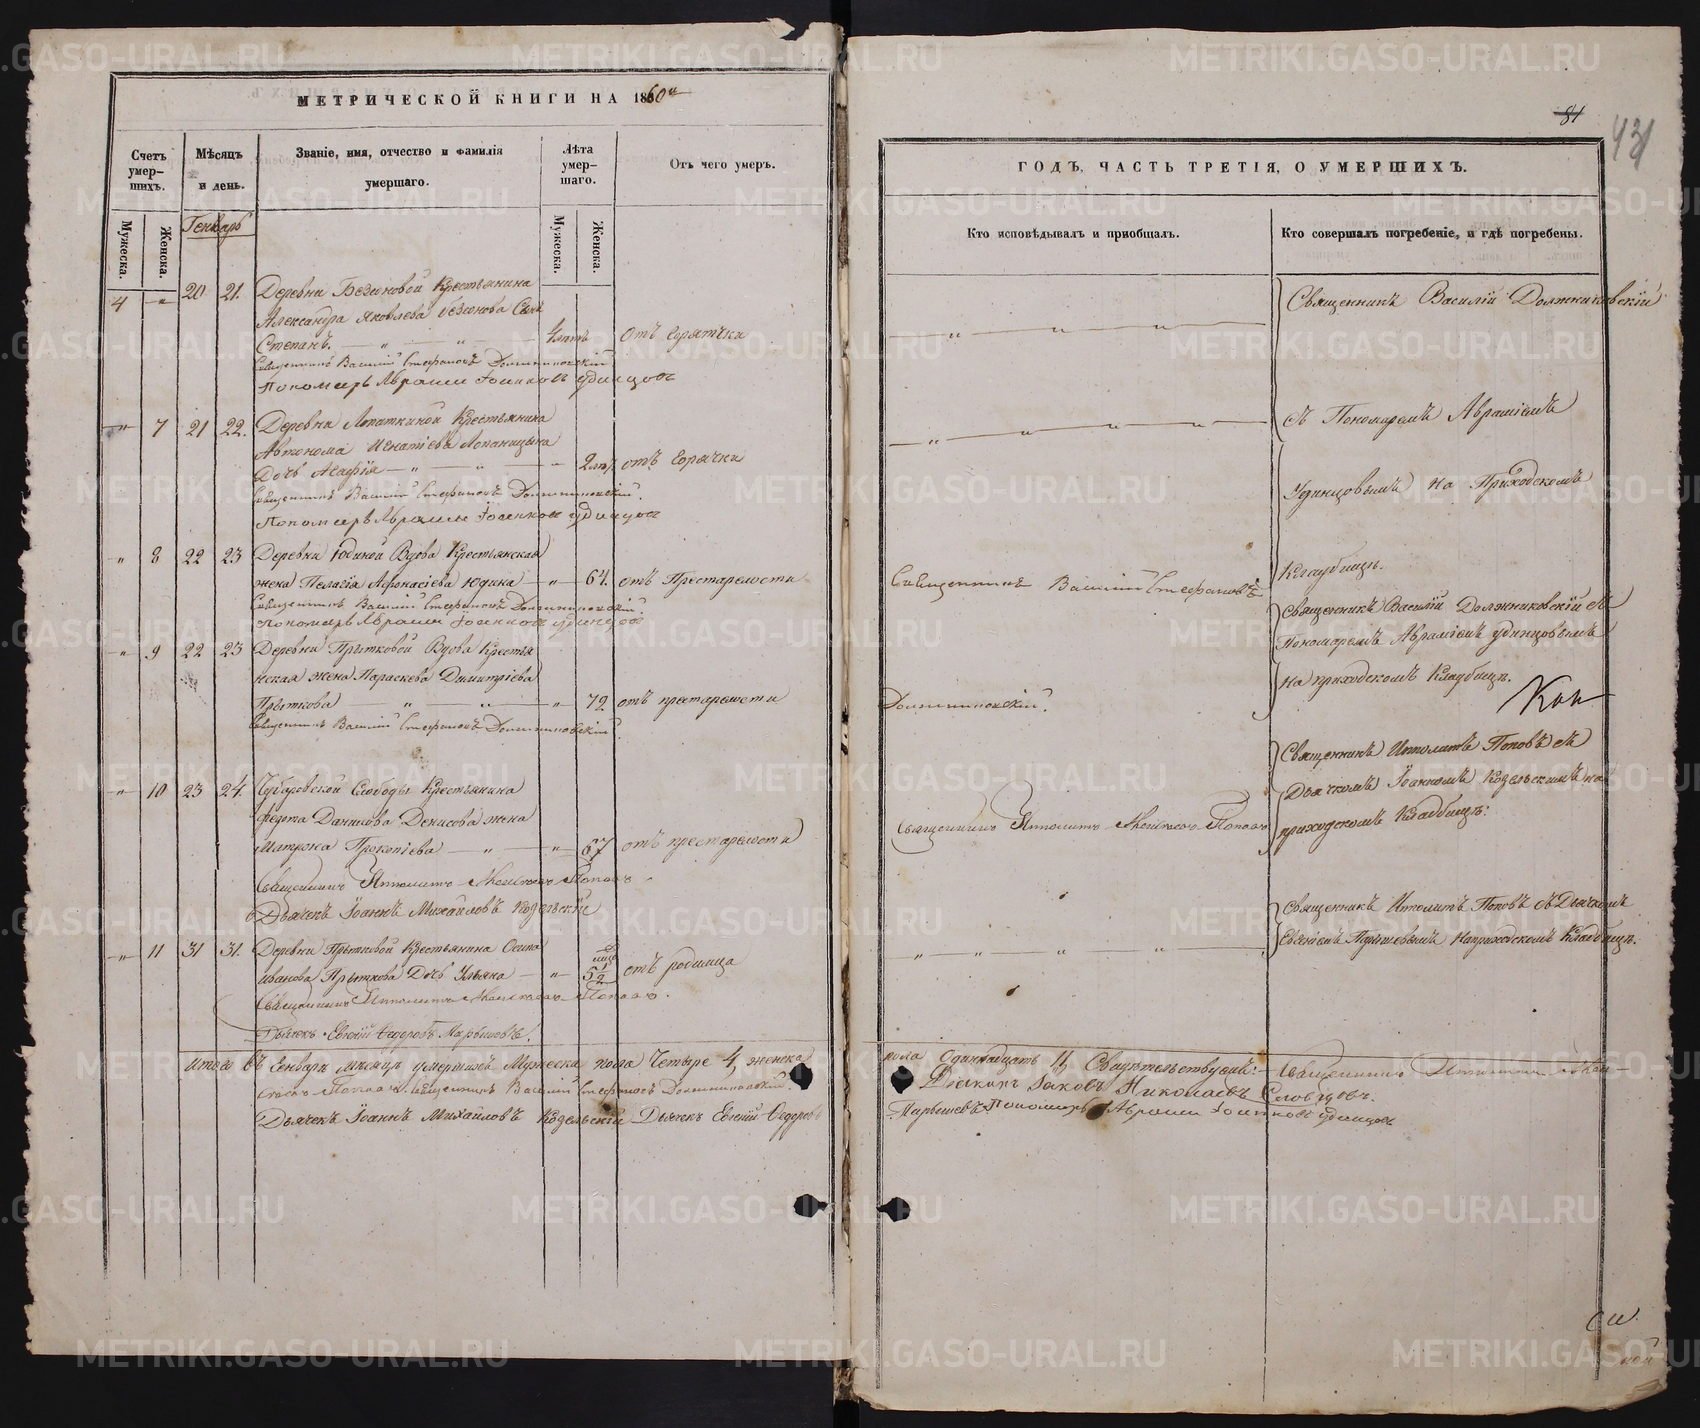 МЕТРИЧЕСКОЙ КНИГИ НА 1860й
Счетъ умер-шихъ.
Мѣсяцъ и день.
Званіе, имя, отчество и фамилія умершаго.
Лѣта умер-шаго.
Отъ чего умеръ.
Мужеска.
Женска.
Мужеска.
Женска.
Генварь
4 " 20 21. Деревни Безсоновой Крестьянина
Александра Яковлева Безсонова Сынъ
Степанъ. " " отъ горячки
Священникъ Василій Стефановъ Должниковскій
Пономарь Аврамий Іоанновъ Удинцовъ
" 7 21 22. Деревни Крестьянина
Автонома Игнатіева
Дочь Агафія " " " 2 отъ Горячки
Священникъ Василій Стефановъ Должниковскій.
Пономарь Аврамий Іоанновъ Удинцовъ
" 8 22 23 Деревни Юдиной Вдова Крестьянская
жена Пелагія Афонасіева Юдина " 64. отъ Престарелости
Священникъ Василій Стефановъ Должниковскій.
Пономарь Аврамий Іоанновъ Удинцовъ
" 9 22 23 Деревни Прытковой Вдова Крестья
нская жена Параскева Димитріева
Прыткова " " " 72 отъ престарелости
Священникъ Василій Стефановъ Должниковскій.
" 10 23 24. Чубаровской Слободы Крестьянина
Федота Данилова Денисова жена
Матрона Прокопіева " " 67 отъ престарелости
Священникъ Ипполитъ Поповъ
Дьячекъ Іоаннъ Михайловъ Козельскій
" 11 31 31. Деревни Прытковой Крестьянина Осипа
Иванова Прыткова Дочь Ульяна " 5 1/2 отъ родимца
Священникъ Ипполитъ Поповъ.
Дьячекъ Евгеній Федоровъ Парышевъ.
Итого въ Генварѣ мѣсяцѣ умершихъ Мужеска пола Четыре 4, женска
Поповъ Священникъ Василій Стефановъ Должниковскій.
Дьячекъ Іоаннъ Михайловъ Козельскій Дьячекъ Евгеній Федоровъ
81
43
ГОДЪ, ЧАСТЬ ТРЕТІЯ, О УМЕРШИХЪ.
Кто исповѣдывалъ и пріобщалъ.
Кто совершалъ погребеніе, и гдѣ погребены.
Священникъ Василій Должниковскій
" " "
съ Пономаремъ Авраміемъ
" " " "
Удинцовымъ на Приходскомъ
Кладбищѣ.
Священникъ Василій Стефановъ
Священникъ Василій Должниковскій съ
Пономаремъ Авраміемъ Удинцовымъ
на приходскомъ Кладбищѣ.
Должниковскій.
Кон
Священникъ Ипполитъ Поповъ съ
Дьячкомъ Іоанномъ Козельскимъ на
приходскомъ Кладбищѣ:
Священникъ Ипполитъ Поповъ
Священникъ Ипполитъ Поповъ съ Дьячкомъ
Евгеніемъ Парышевымъ На приходскомъ Кладбищѣ.
" " " "
пола одиннадцать 11, Свидѣтельствуемъ: Священникъ Ипполитъ
Діаконъ Іаковъ Николаевъ Словцовъ.
Парышевъ Пономарь Аврамий Іоанновъ Удинцовъ
METRIKI.GASO-URAL.RU